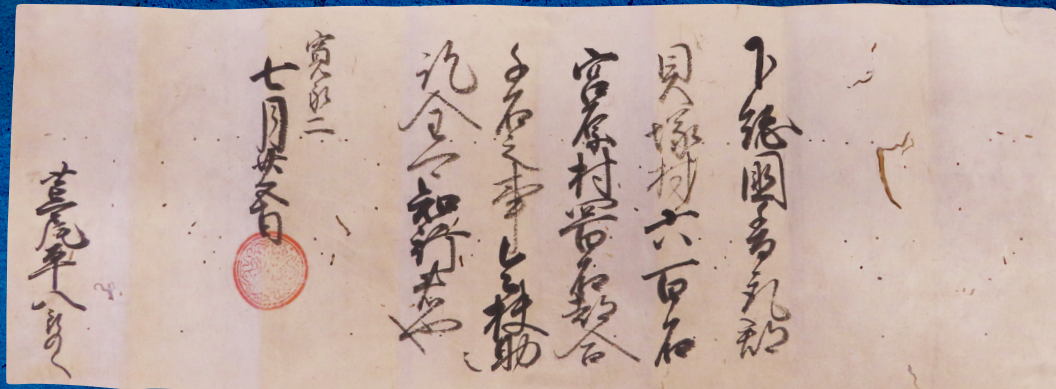 下総国香取郡
貝塚村六百石
宮原村四百石都合
千石之事令扶助
訖全可知行者也
寛永二
七月廿七日